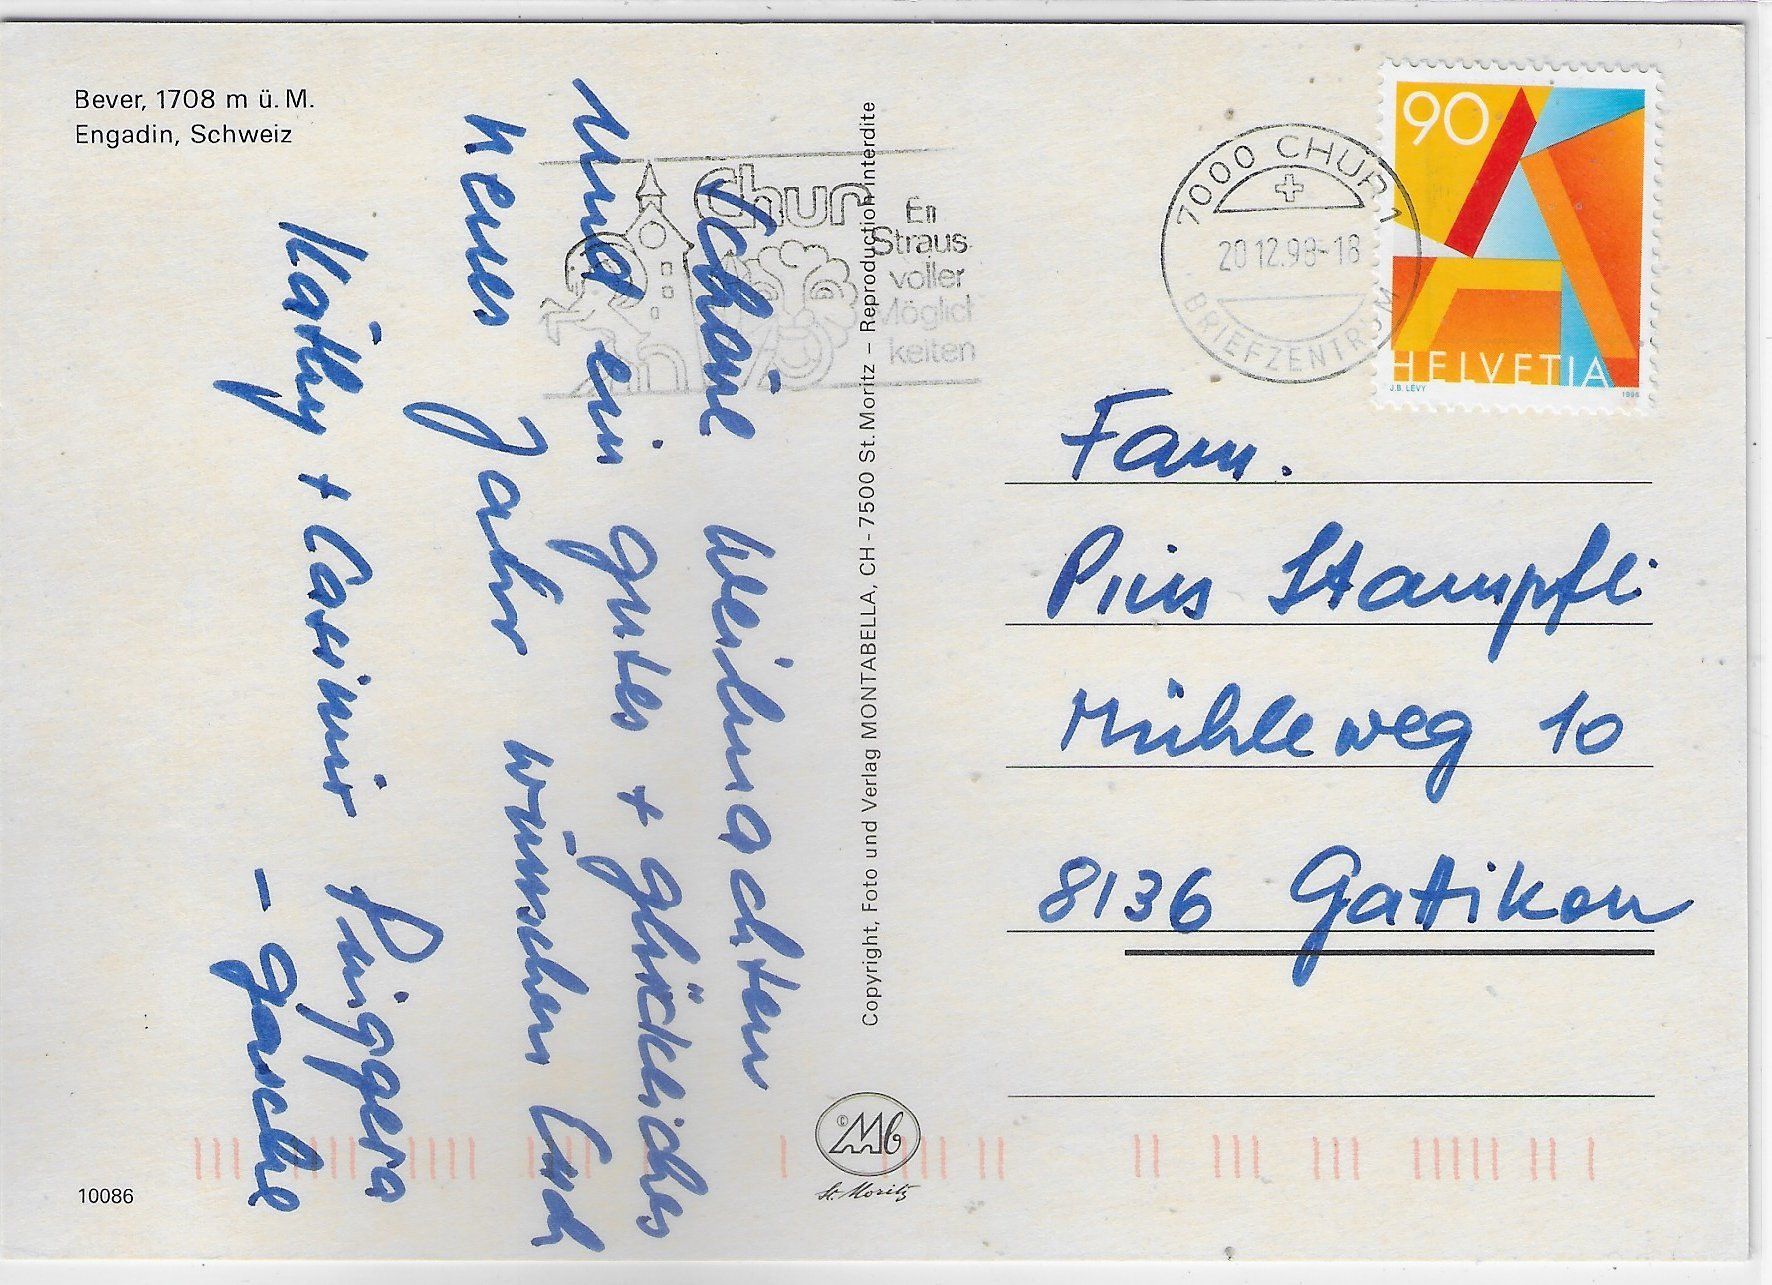 Bever, 1708 m ü. M.
Engadin, Schweiz
Schöne Weihnachten
und ein gutes + glückliches
neues Jahr wünschen Euch
Käthy + Casimir
- Gasche
10086
Chur
Ein
Straus
voller
Möglich
keiten
Copyright, Foto und Verlag MONTABELLA, CH - 7500 St. Moritz – Reproduction interdite
Mb
St. Moritz
7000 CHUR 1
20.12.98-18
BRIEFZENTRUM
90
HELVETIA
J.B. LEVY
Fam.
Pius Stampfli
Mühleweg 10
8136 Gattikon